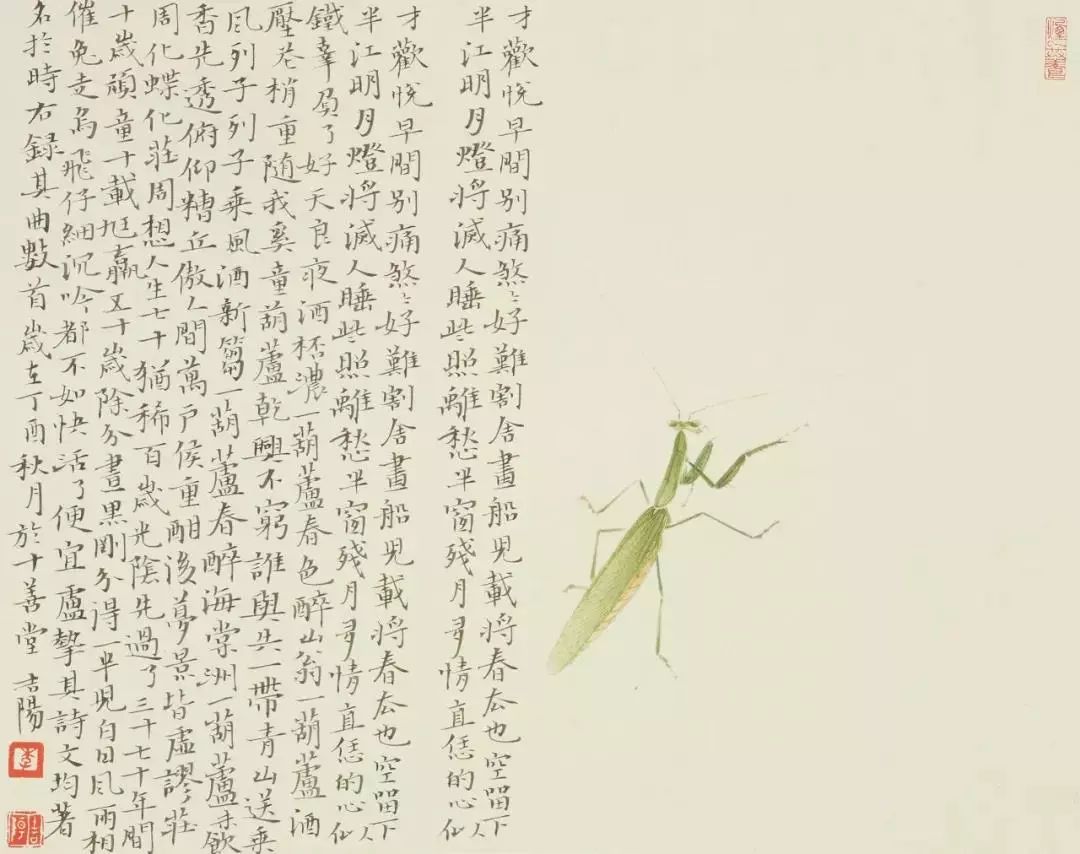 才歡悅早間別痛煞〻好難割舍畫船兒載將春去也空留下
半江明月燈將滅人睡些照離愁半窗殘月多情直恁的心似
才歡悅早間別痛煞〻好難割舍畫船兒載將春去也空留下
半江明月燈將滅人睡些照離愁半窗殘月多情直恁的心似
鐵辜負了好天良夜酒桮濃一葫蘆春色醉山翁一葫蘆酒
壓花梢重隨我奚童葫蘆乾興不窮誰與共一帶青山送乘
風列子列子乘風酒新篘一葫蘆春醉海棠洲一葫蘆未飲
香先透俯仰糟丘傲人間萬戶侯重酣後夢景皆虛謬莊
周化蝶化莊周想人生七十猶稀百歲光陰先過了三十七十年間
十歲頑童十載尪羸五十歲除分晝黑剛分得一半兒白日風雨相
催兔走烏飛仔細沉吟都不如快活了便宜盧摯其詩文均著
名於時右錄其曲數首歲在丁酉秋月於十善堂 吉陽
李